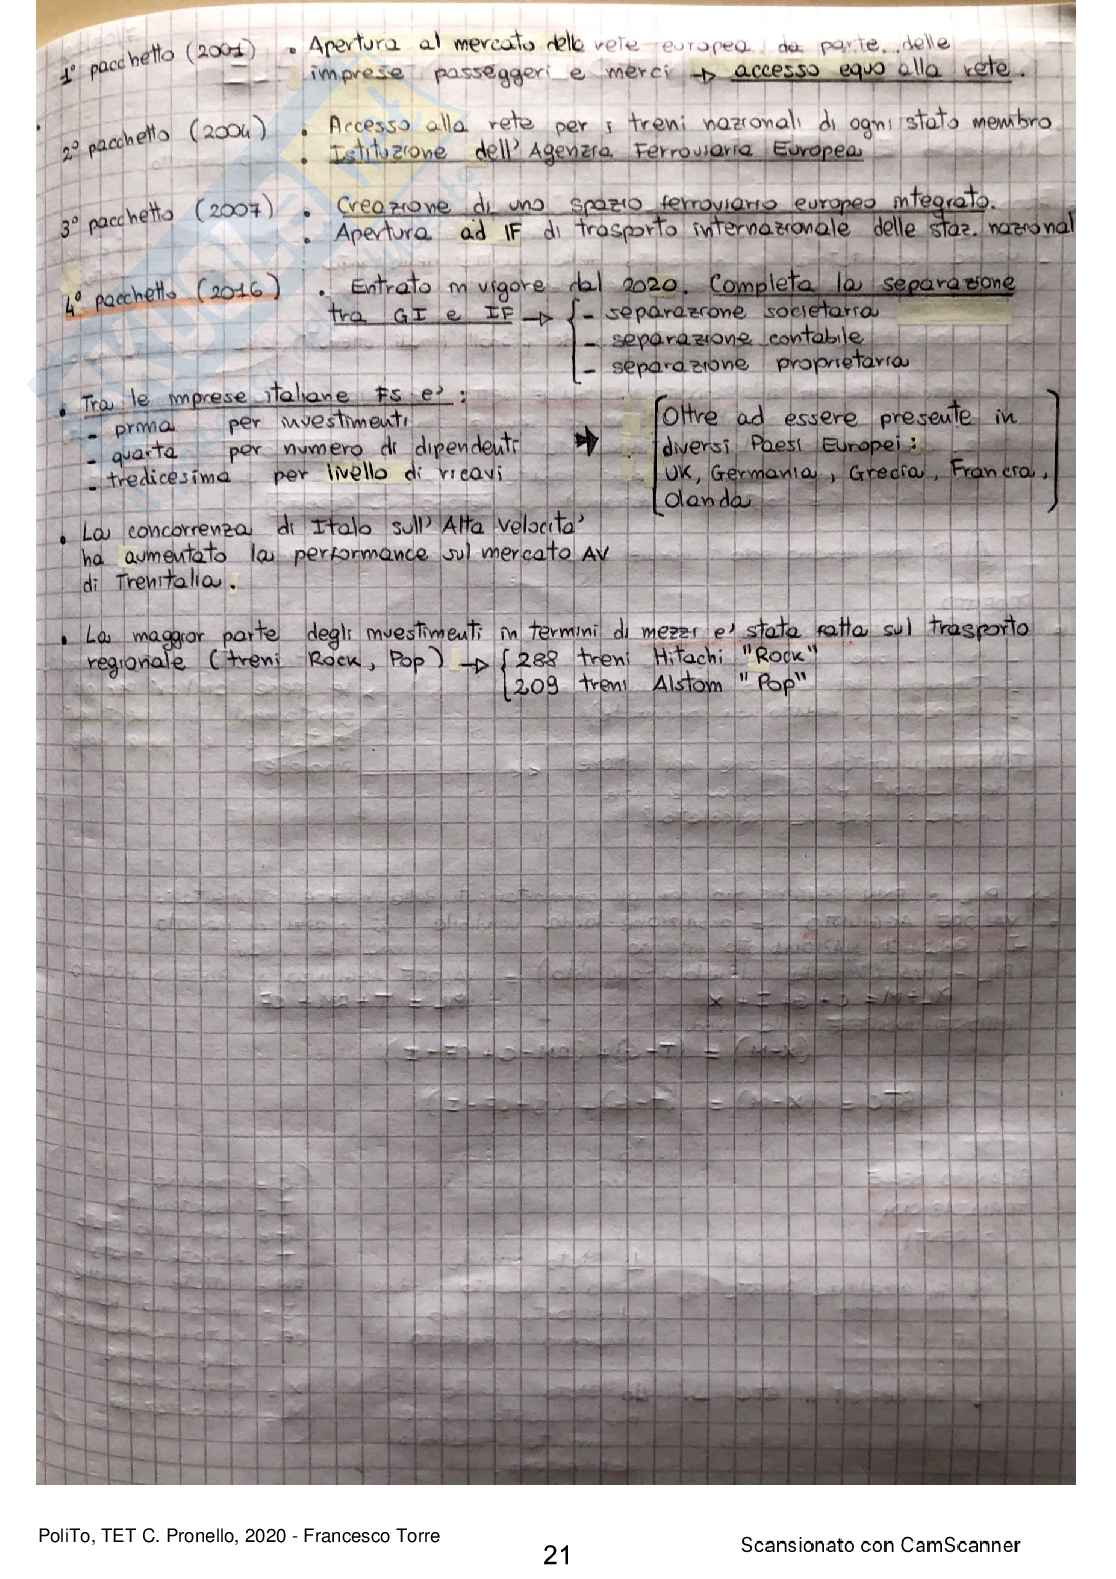 1° pacchetto (2001) • Apertura al mercato della rete europea da parte delle
imprese passeggeri e merci → accesso equo alla rete.
2° pacchetto (2004) • Accesso alla rete per i treni nazionali di ogni stato membro
• Istituzione dell'Agenzia Ferroviaria Europea
3° pacchetto (2007) • Creazione di uno spazio ferroviario europeo integrato.
• Apertura ad IF di trasporto internazionale delle staz. nazional
4° pacchetto (2016) • Entrato in vigore dal 2020. Completa la separazione
tra GI e IF → { - separazione societaria
- separazione contabile
- separazione proprietaria
• Tra le imprese italiane FS e' :
- prima per investimenti
- quarta per numero di dipendenti
- tredicesima per livello di ricavi
→ [Oltre ad essere presente in
diversi Paesi Europei:
UK, Germania, Grecia, Francia,
Olanda]
• La concorrenza di Italo sull'Alta Velocita'
ha aumentato la performance sul mercato AV
di Trenitalia.
• La maggior parte degli investimenti in termini di mezzi e' stata fatta sul trasporto
regionale (treni Rock, Pop) → { 288 treni Hitachi "Rock"
209 treni Alstom "Pop"
PoliTo, TET C. Pronello, 2020 - Francesco Torre
21
Scansionato con CamScanner